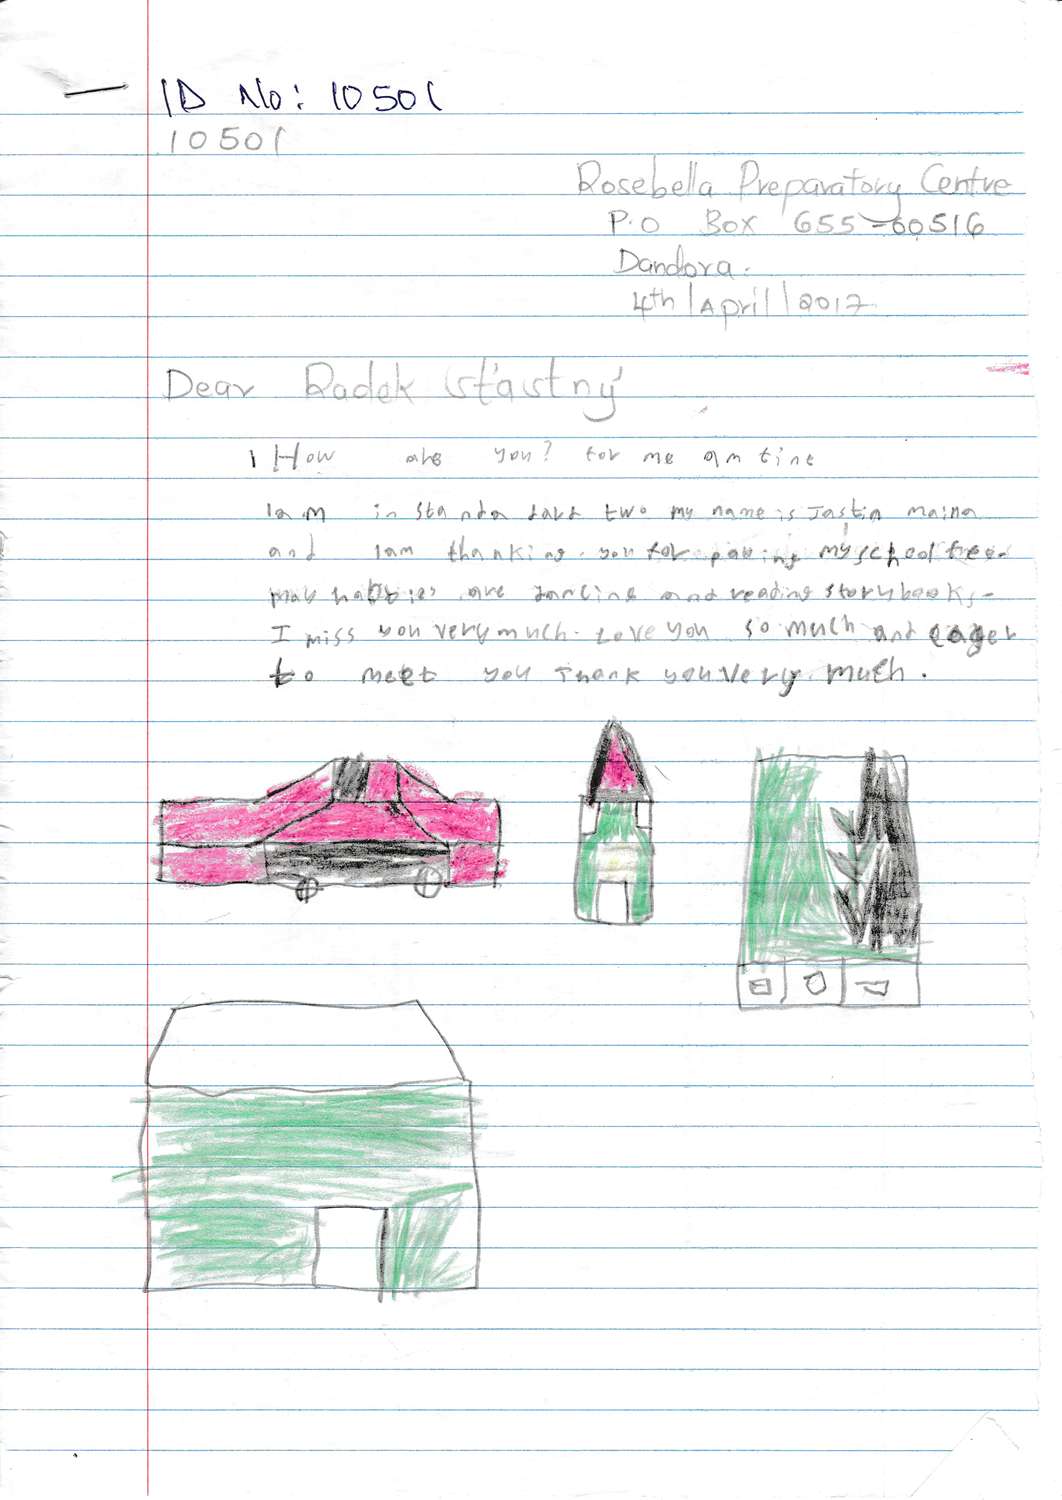 ID No: 10501
10501
Rosebella Preparatory Centre
P.O Box 655-60516
Dandora.
4th/April/2017
Dear Radek Šťastný
How are you? for me am fine
Iam in standa dard two my name is Jastin maina
and Iam thanking. you for paying my school fees.
may hobbies are dancing and reading story books.
I miss you very much. Love you so much and eager
to meet you Thank you very much.